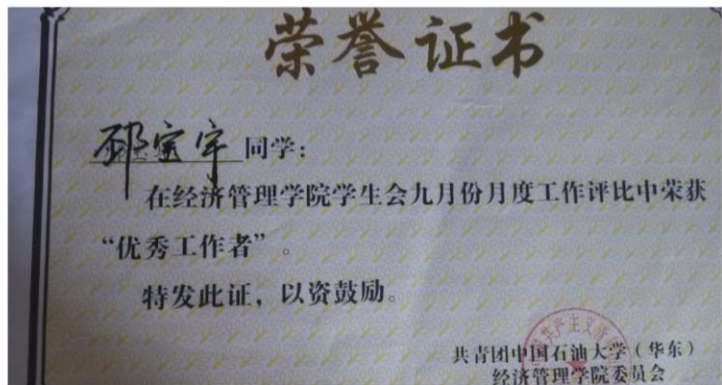 荣誉证书
邳宝宇同学：
在经济管理学院学生会九月份月度工作评比中荣获
“优秀工作者”。
特发此证，以资鼓励。
共产主义
共青团中国石油大学（华东）
经济管理学院委员会